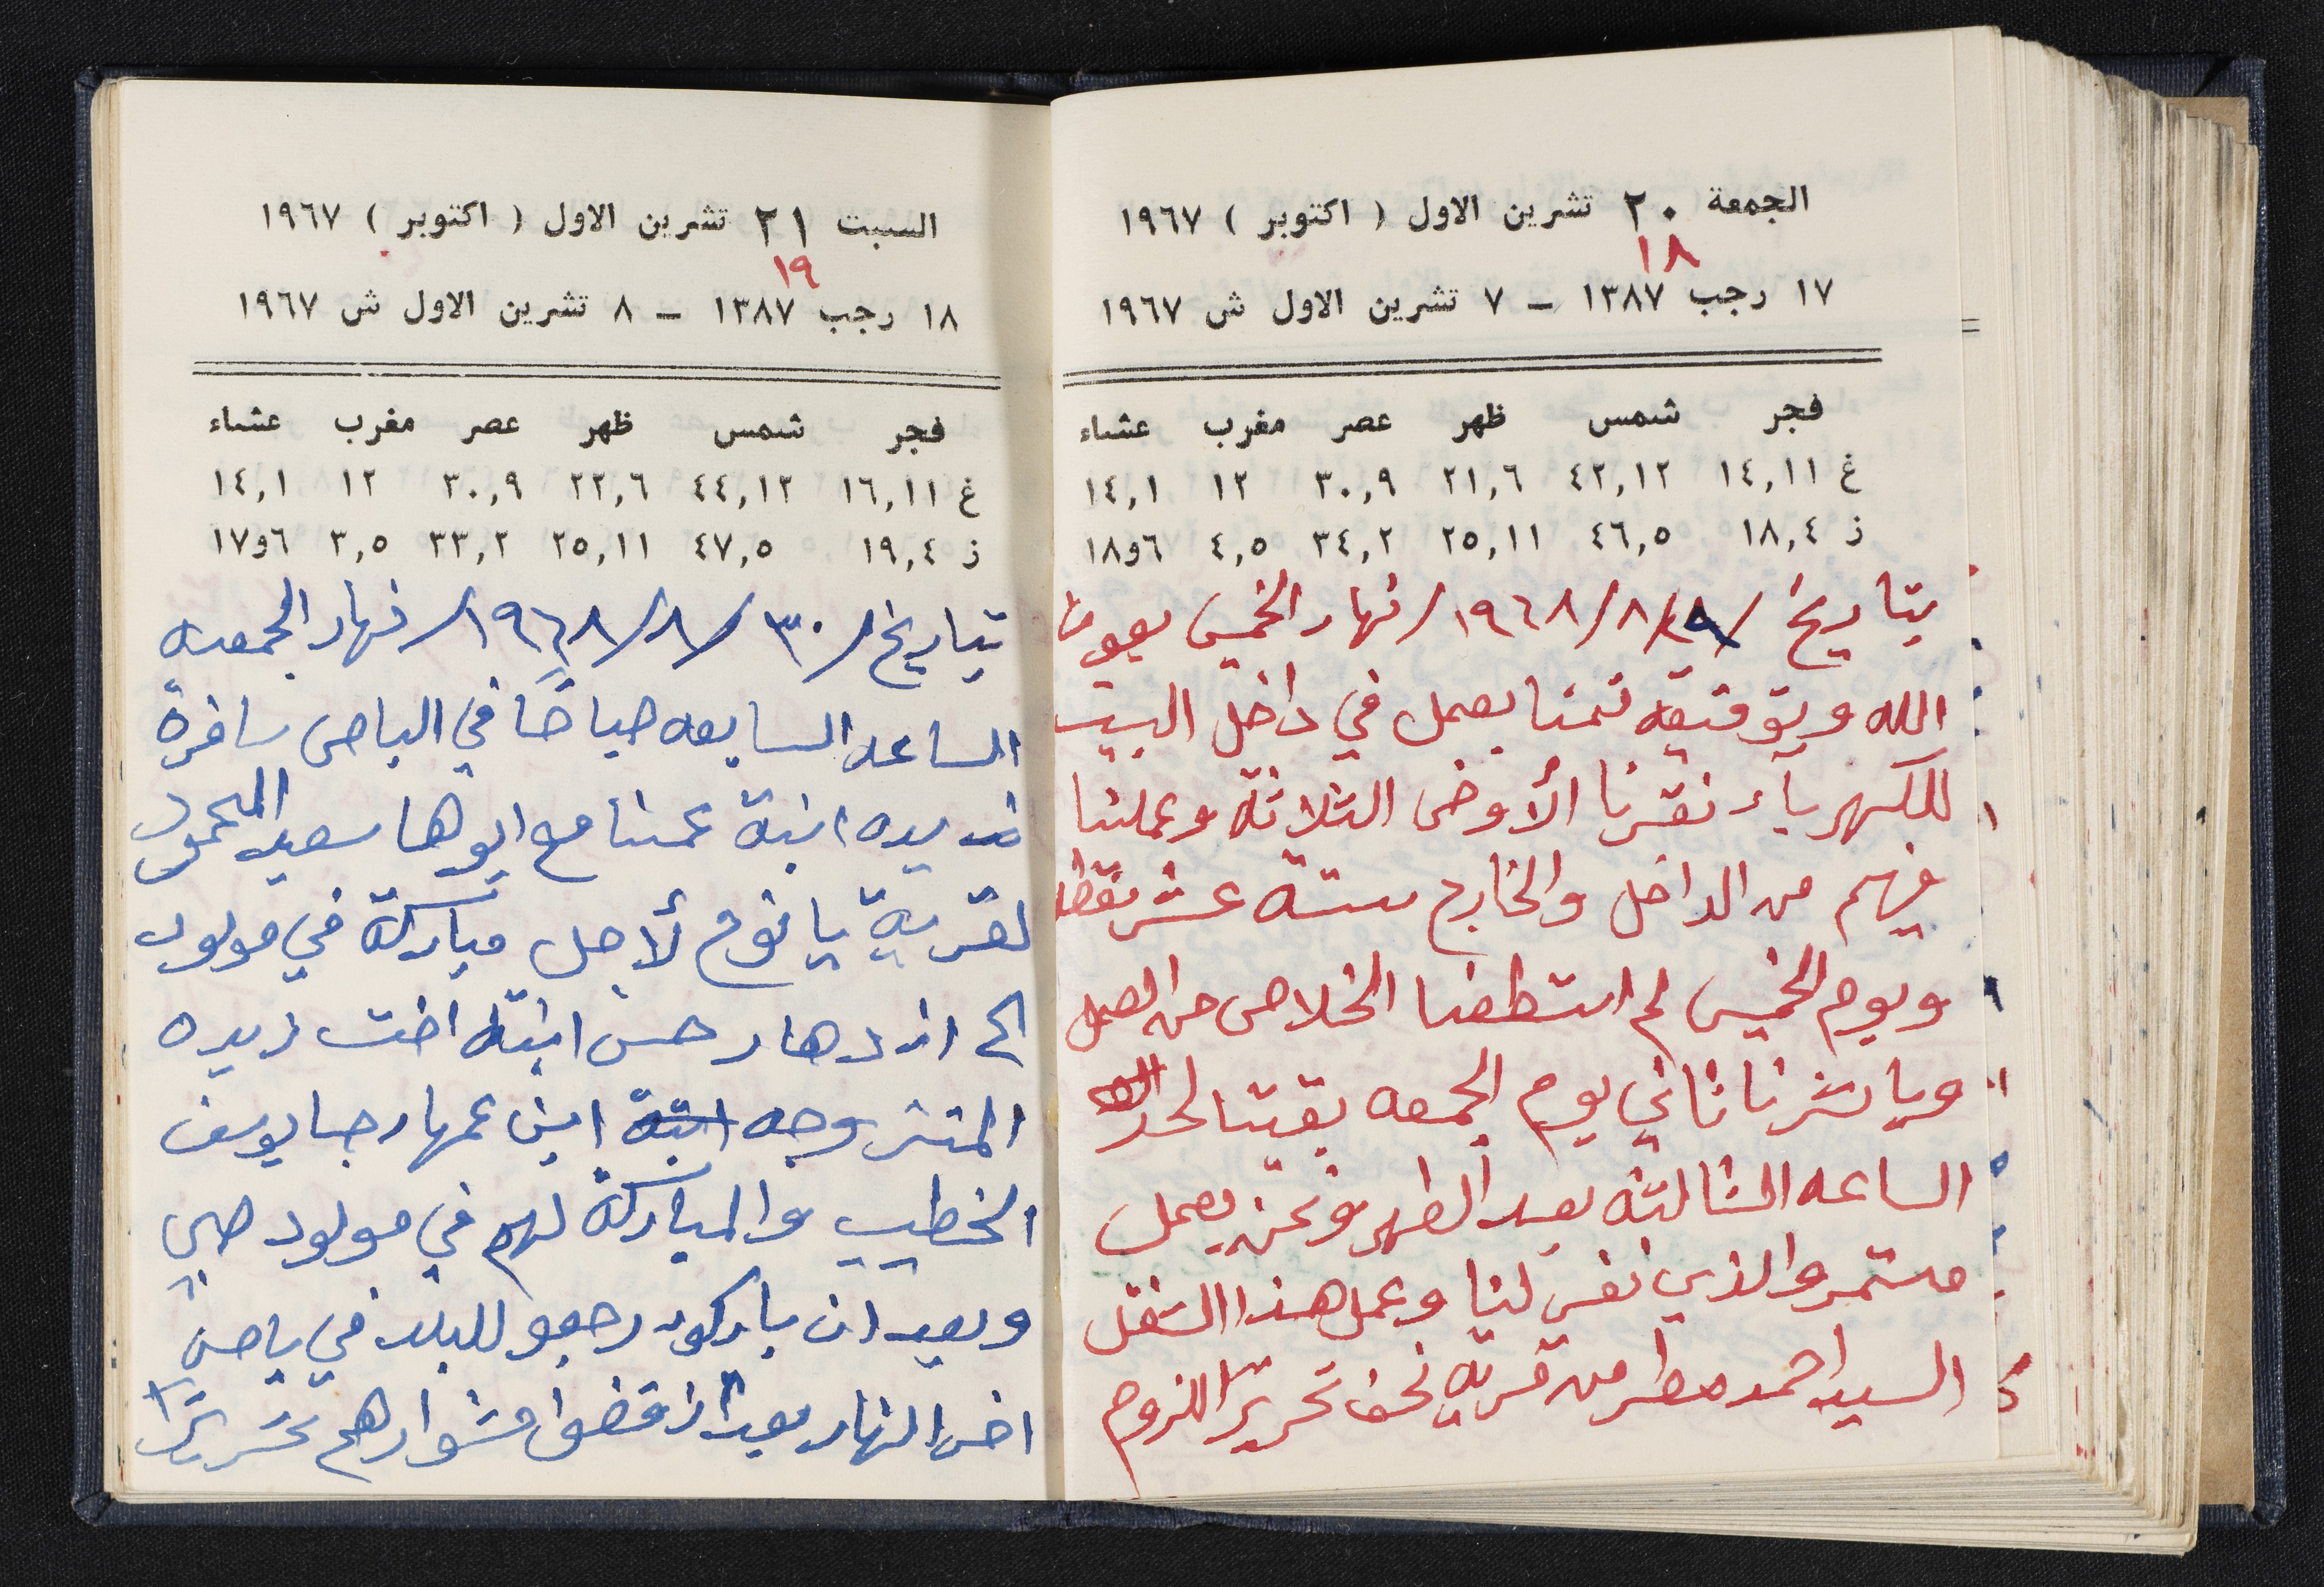 الجمعة ٢٠ تشرين الاول ( اكتوبر ) ١٩٦٧
١٨
١٧ رجب ١٣٨٧ – ٧ تشرين الاول ش ١٩٦٧
فجر شمس ظهر عصر مغرب عشاء
غ ١٤,١١ ٤٢,١٢ ٢١,٦ ٣٠,٩ ١٢ ١٤,١
ز ١٨,٤ ٤٦,٥ ٢٥,١١ ٣٤,٢ ٤,٥ ٦و١٨
بتاريخ /٢٩/٨/١٩٦٨/ نهار الخميس بعون
الله وبتوفيقه قمنا بعمل في داخل البيت
للكهرباء نقرنا الأوض الثلاثة وعملنا
فيهم من الداخل والخارج ستة عشر نقطه
ويوم الخميس لم استطعنا الخلاص من العمل
وباشرنا ثاني يوم الجمعه بقينا لحد
الساعه الثالثه بعد الظهر ونحن بعمل
مستمر والذي نقر لنا وعمل هذا الشغل
السيد احمد مطر من قرية نحف تحريرًا للزوم
السبت ٢١ تشرين الاول ( اكتوبر ) ١٩٦٧
١٩
١٨ رجب ١٣٨٧ – ٨ تشرين الاول ش ١٩٦٧
فجر شمس ظهر عصر مغرب عشاء
غ ١٦,١١ ٤٤,١٢ ٢٢,٦ ٣٠,٩ ١٢ ١٤,١
ز ١٩,٤ ٤٧,٥ ٢٥,١١ ٣٣,٢ ٣,٥ ٦و١٧
بتاريخ /٣٠/٨/١٩٦٨/ نهار الجمعه
الساعه السابعه صباحًا في الباص سافرة
ابنة عمنا مع ابوها سعيد المحمود
لقرية يانوح لأجل مباركة في مولود
الى ازدهار حسن ابنة اخت زيده
المتزوجه ابن عمها رجا يوسف
الخطيب والمباركة لهم في مولود صبي
وبعد ان باركو رجعو للبلد في باص
اخر النهار بعد ان قضوا مشوارهم تحريرًا